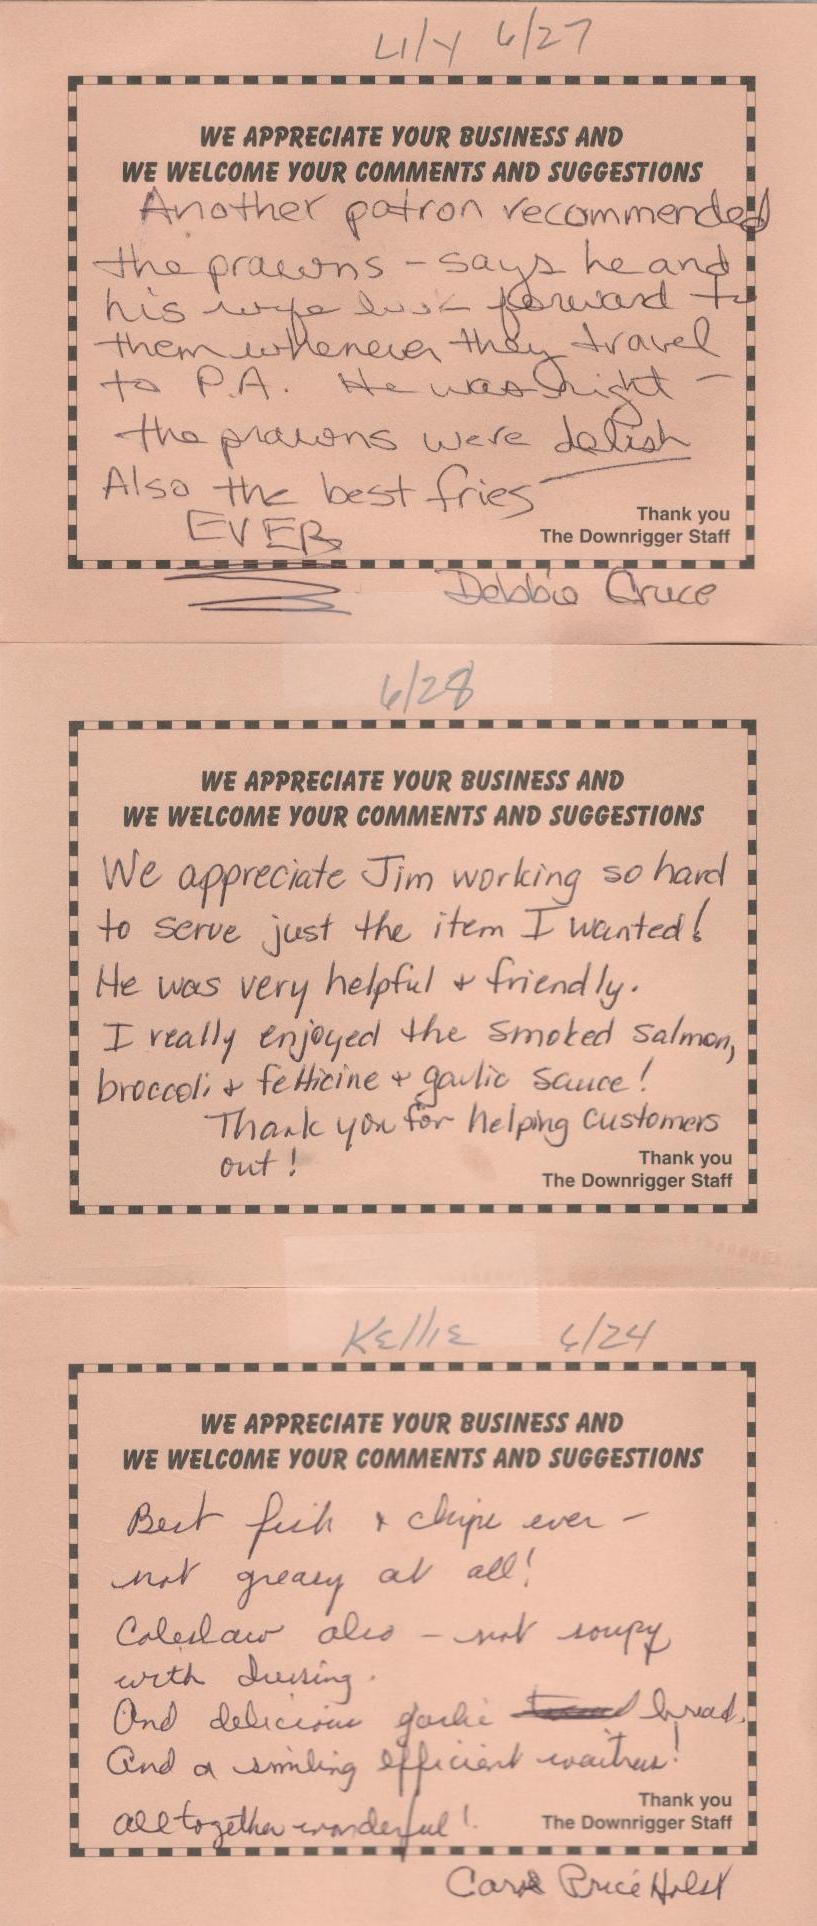 Lily 6/27
WE APPRECIATE YOUR BUSINESS AND
WE WELCOME YOUR COMMENTS AND SUGGESTIONS
Another patron recommended
the prawns - says he and
his wife look forward to
them whenever they travel
to P.A. He was right -
the prawns were delish
Also the best fries
EVER
Thank you
The Downrigger Staff
Debbie Cruce
6/28
WE APPRECIATE YOUR BUSINESS AND
WE WELCOME YOUR COMMENTS AND SUGGESTIONS
We appreciate Jim working so hard
to serve just the item I wanted!
He was very helpful + friendly.
I really enjoyed the smoked salmon,
broccoli + fetticine + garlic sauce!
Thank you for helping customers
out!
Thank you
The Downrigger Staff
Kellie 6/24
WE APPRECIATE YOUR BUSINESS AND
WE WELCOME YOUR COMMENTS AND SUGGESTIONS
Best fish + chips ever -
not greasy at all!
Coleslaw also - not soupy
with dressing.
And delicious garlic bread.
And a smiling efficient waitress!
all together wonderful!
Thank you
The Downrigger Staff
Price Holst